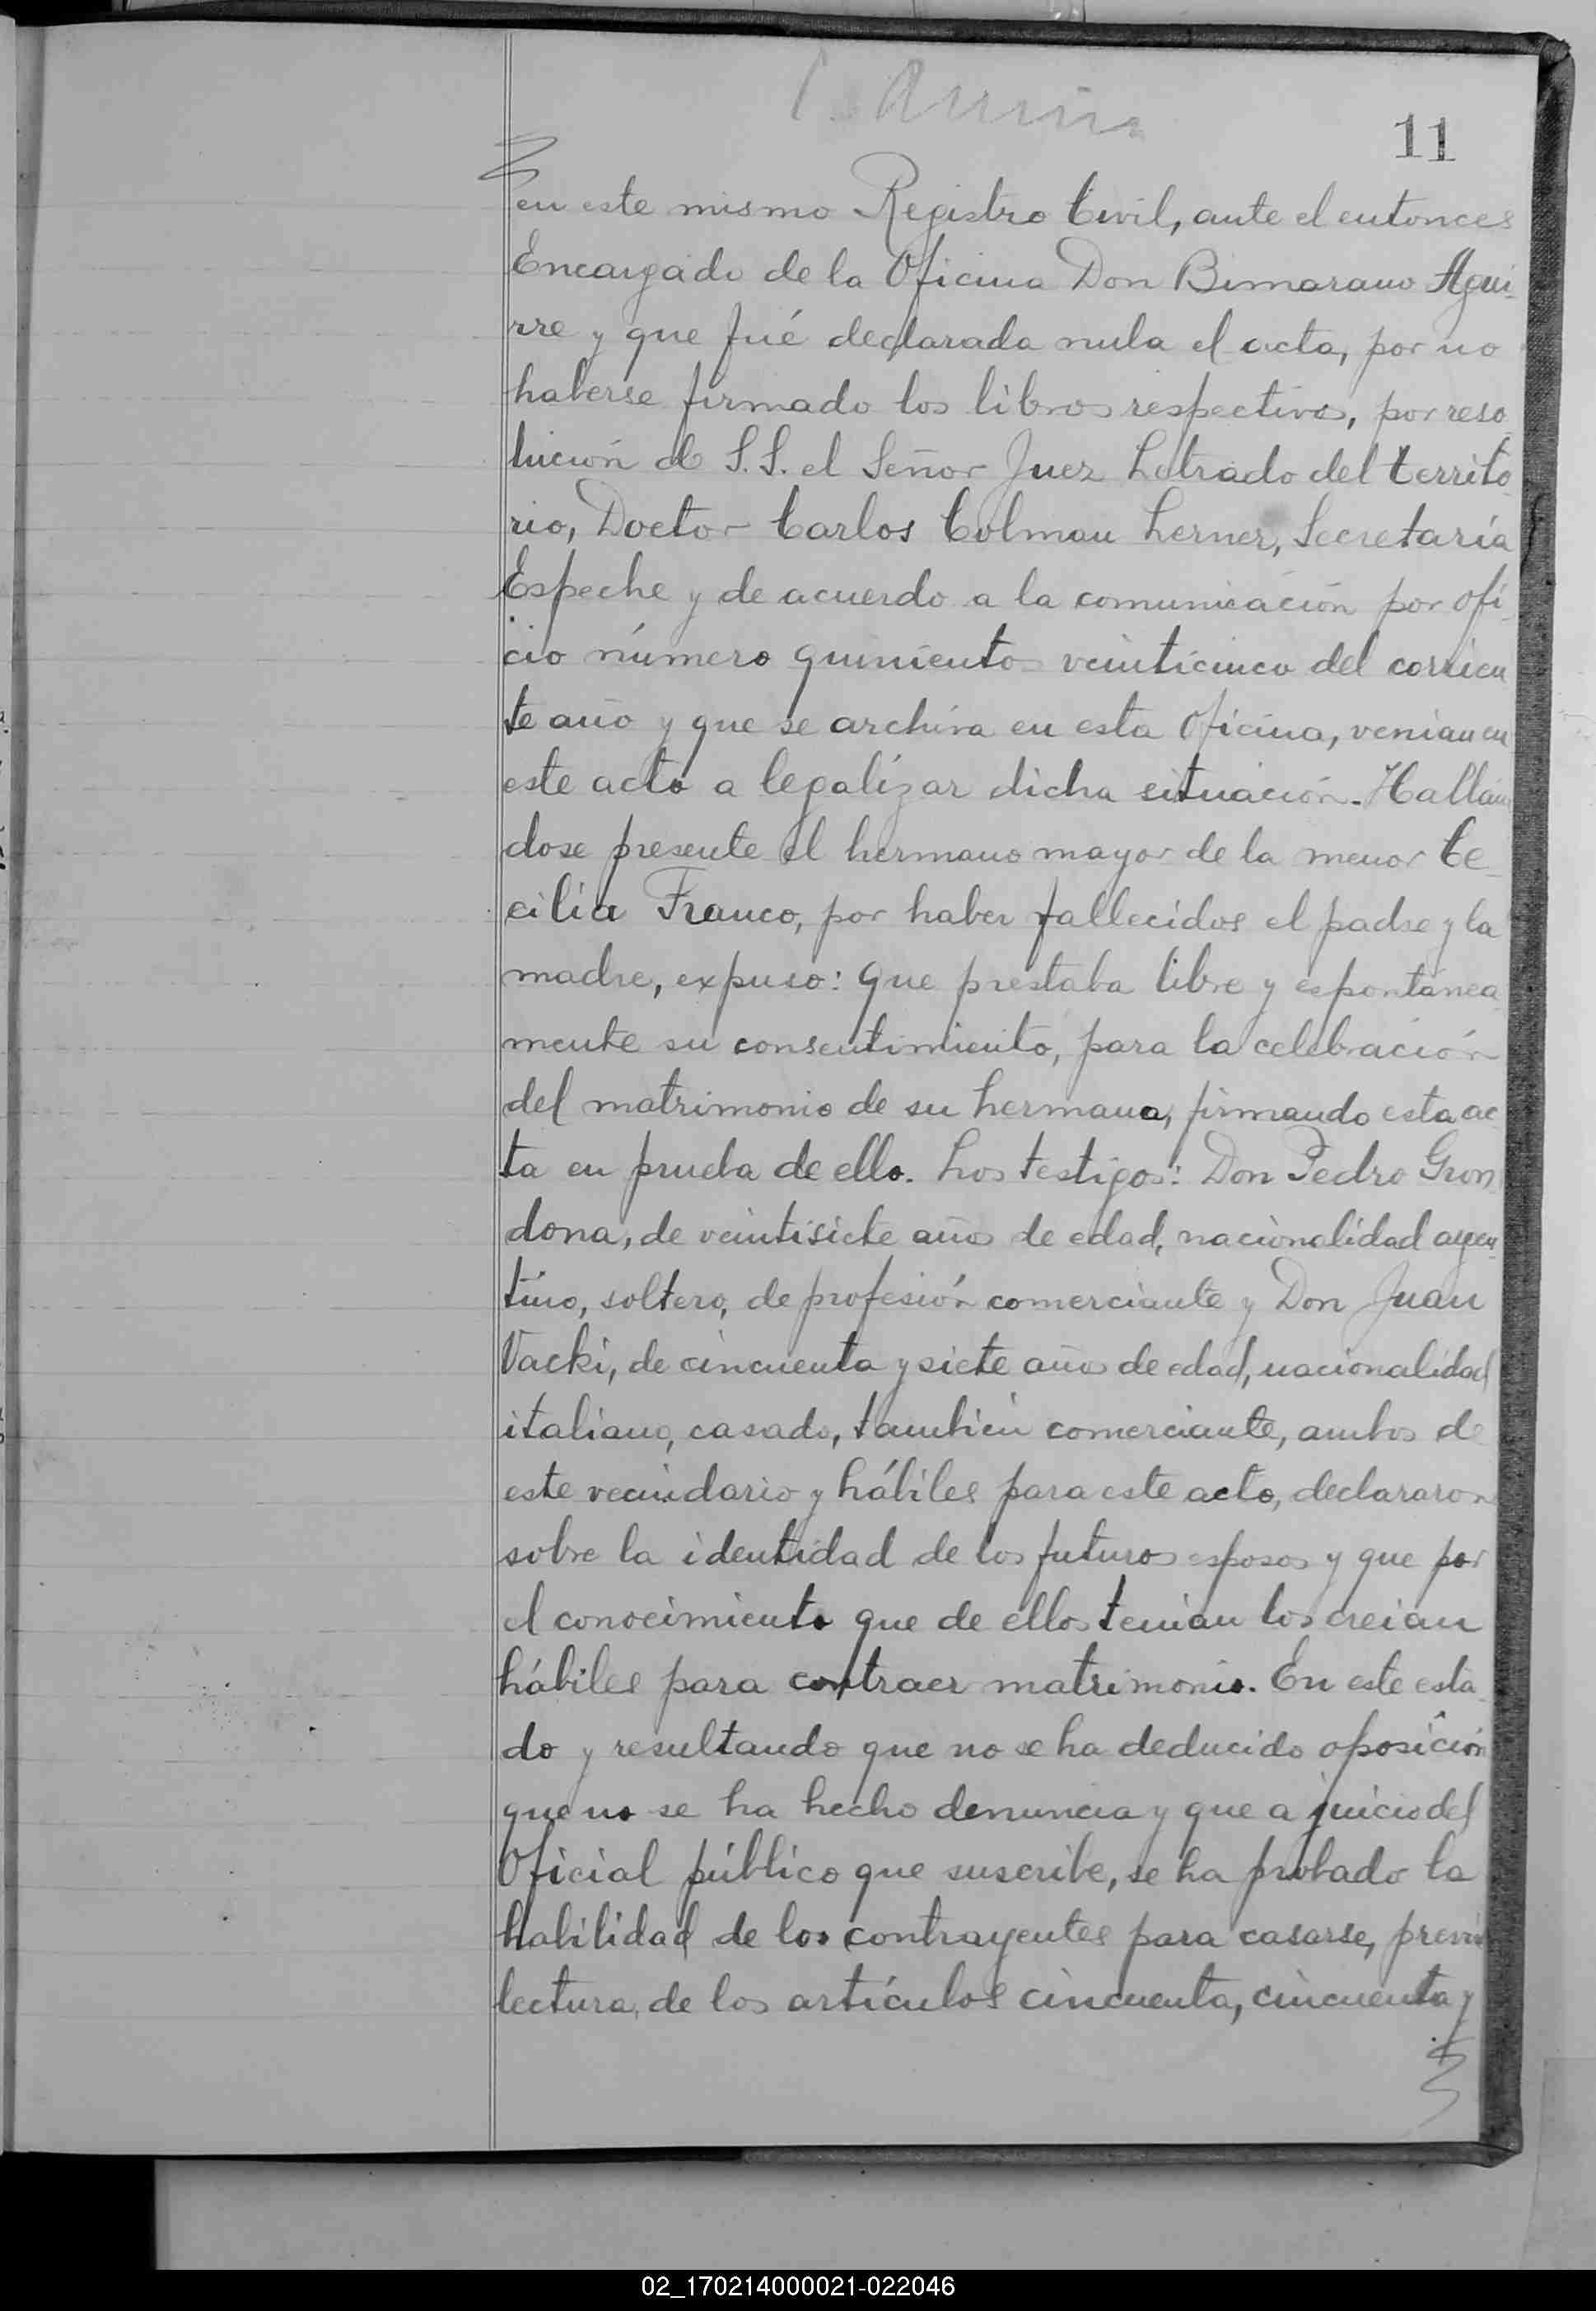 11
en este mismo Registro Civil, ante el entonces
Encargado de la Oficina Don Bimarano Agui-
rre y que fué declarada nula el acta, por no
haberse firmado los libros respectivos, por reso-
lución de S.S. el Señor Juez Letrado del territo-
rio, Doctor Carlos Colman Lerner, Secretaría
Espeche y de acuerdo a la comunicación por ofi-
cio número quinientos veinticinco del corrien
te año y que se archiva en esta Oficina, venian en
este acto a legalizar dicha situación. Hallán
dose presente el hermano mayor de la menor Ce-
cilia Franco, por haber fallecidos el padre y la
madre, expuso: que prestaba libre y espontánea
mente su consentimiento, para la celebración
del matrimonio de su hermana, firmando esta ac
ta en prueba de ello. Los testigos: Don Pedro Gron
dona, de veintisiete años de edad, nacionalidad argen-
tino, soltero, de profesión comerciante y Don Juan
Vacki, de cincuenta y siete años de edad, nacionalidad
italiano, casado, también comerciante, ambos de
este vecindario y hábiles para este acto, declararon
sobre la identidad de los futuros esposos y que por
el conocimiento que de ellos tenian los creian
hábiles para contraer matrimonio. En este esta-
do y resultando que no se ha deducido oposición
que no se ha hecho denuncia y que a juicio del
Oficial público que suscribe, se ha probado la
habilidad de los contrayentes para casarse, previa
lectura de los artículos cincuenta, cincuenta y
02_170214000021-022046